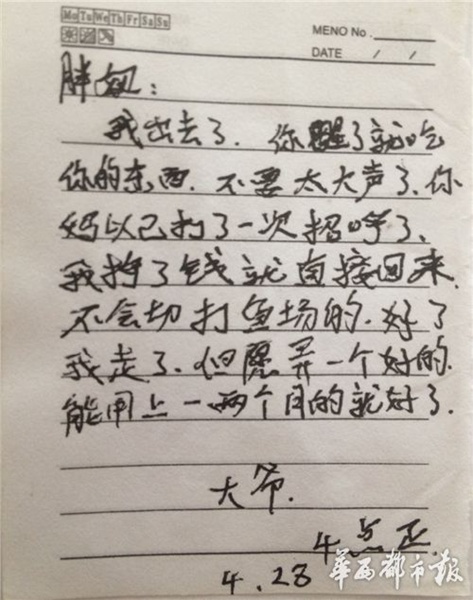 Mo Tu We Th Fr Sa Su
MENO No.
DATE / /
胖妞：
我出去了．你醒了就吃
你的东西．不要太大声了．你
妈以己打了一次招呼了、
我挣了钱就直接回来．
不会切打鱼场的．好了
我走了．但愿弄一个好的．
能用上一两个月的就好了．
大爷．
4点正．
4．28
华西都市报